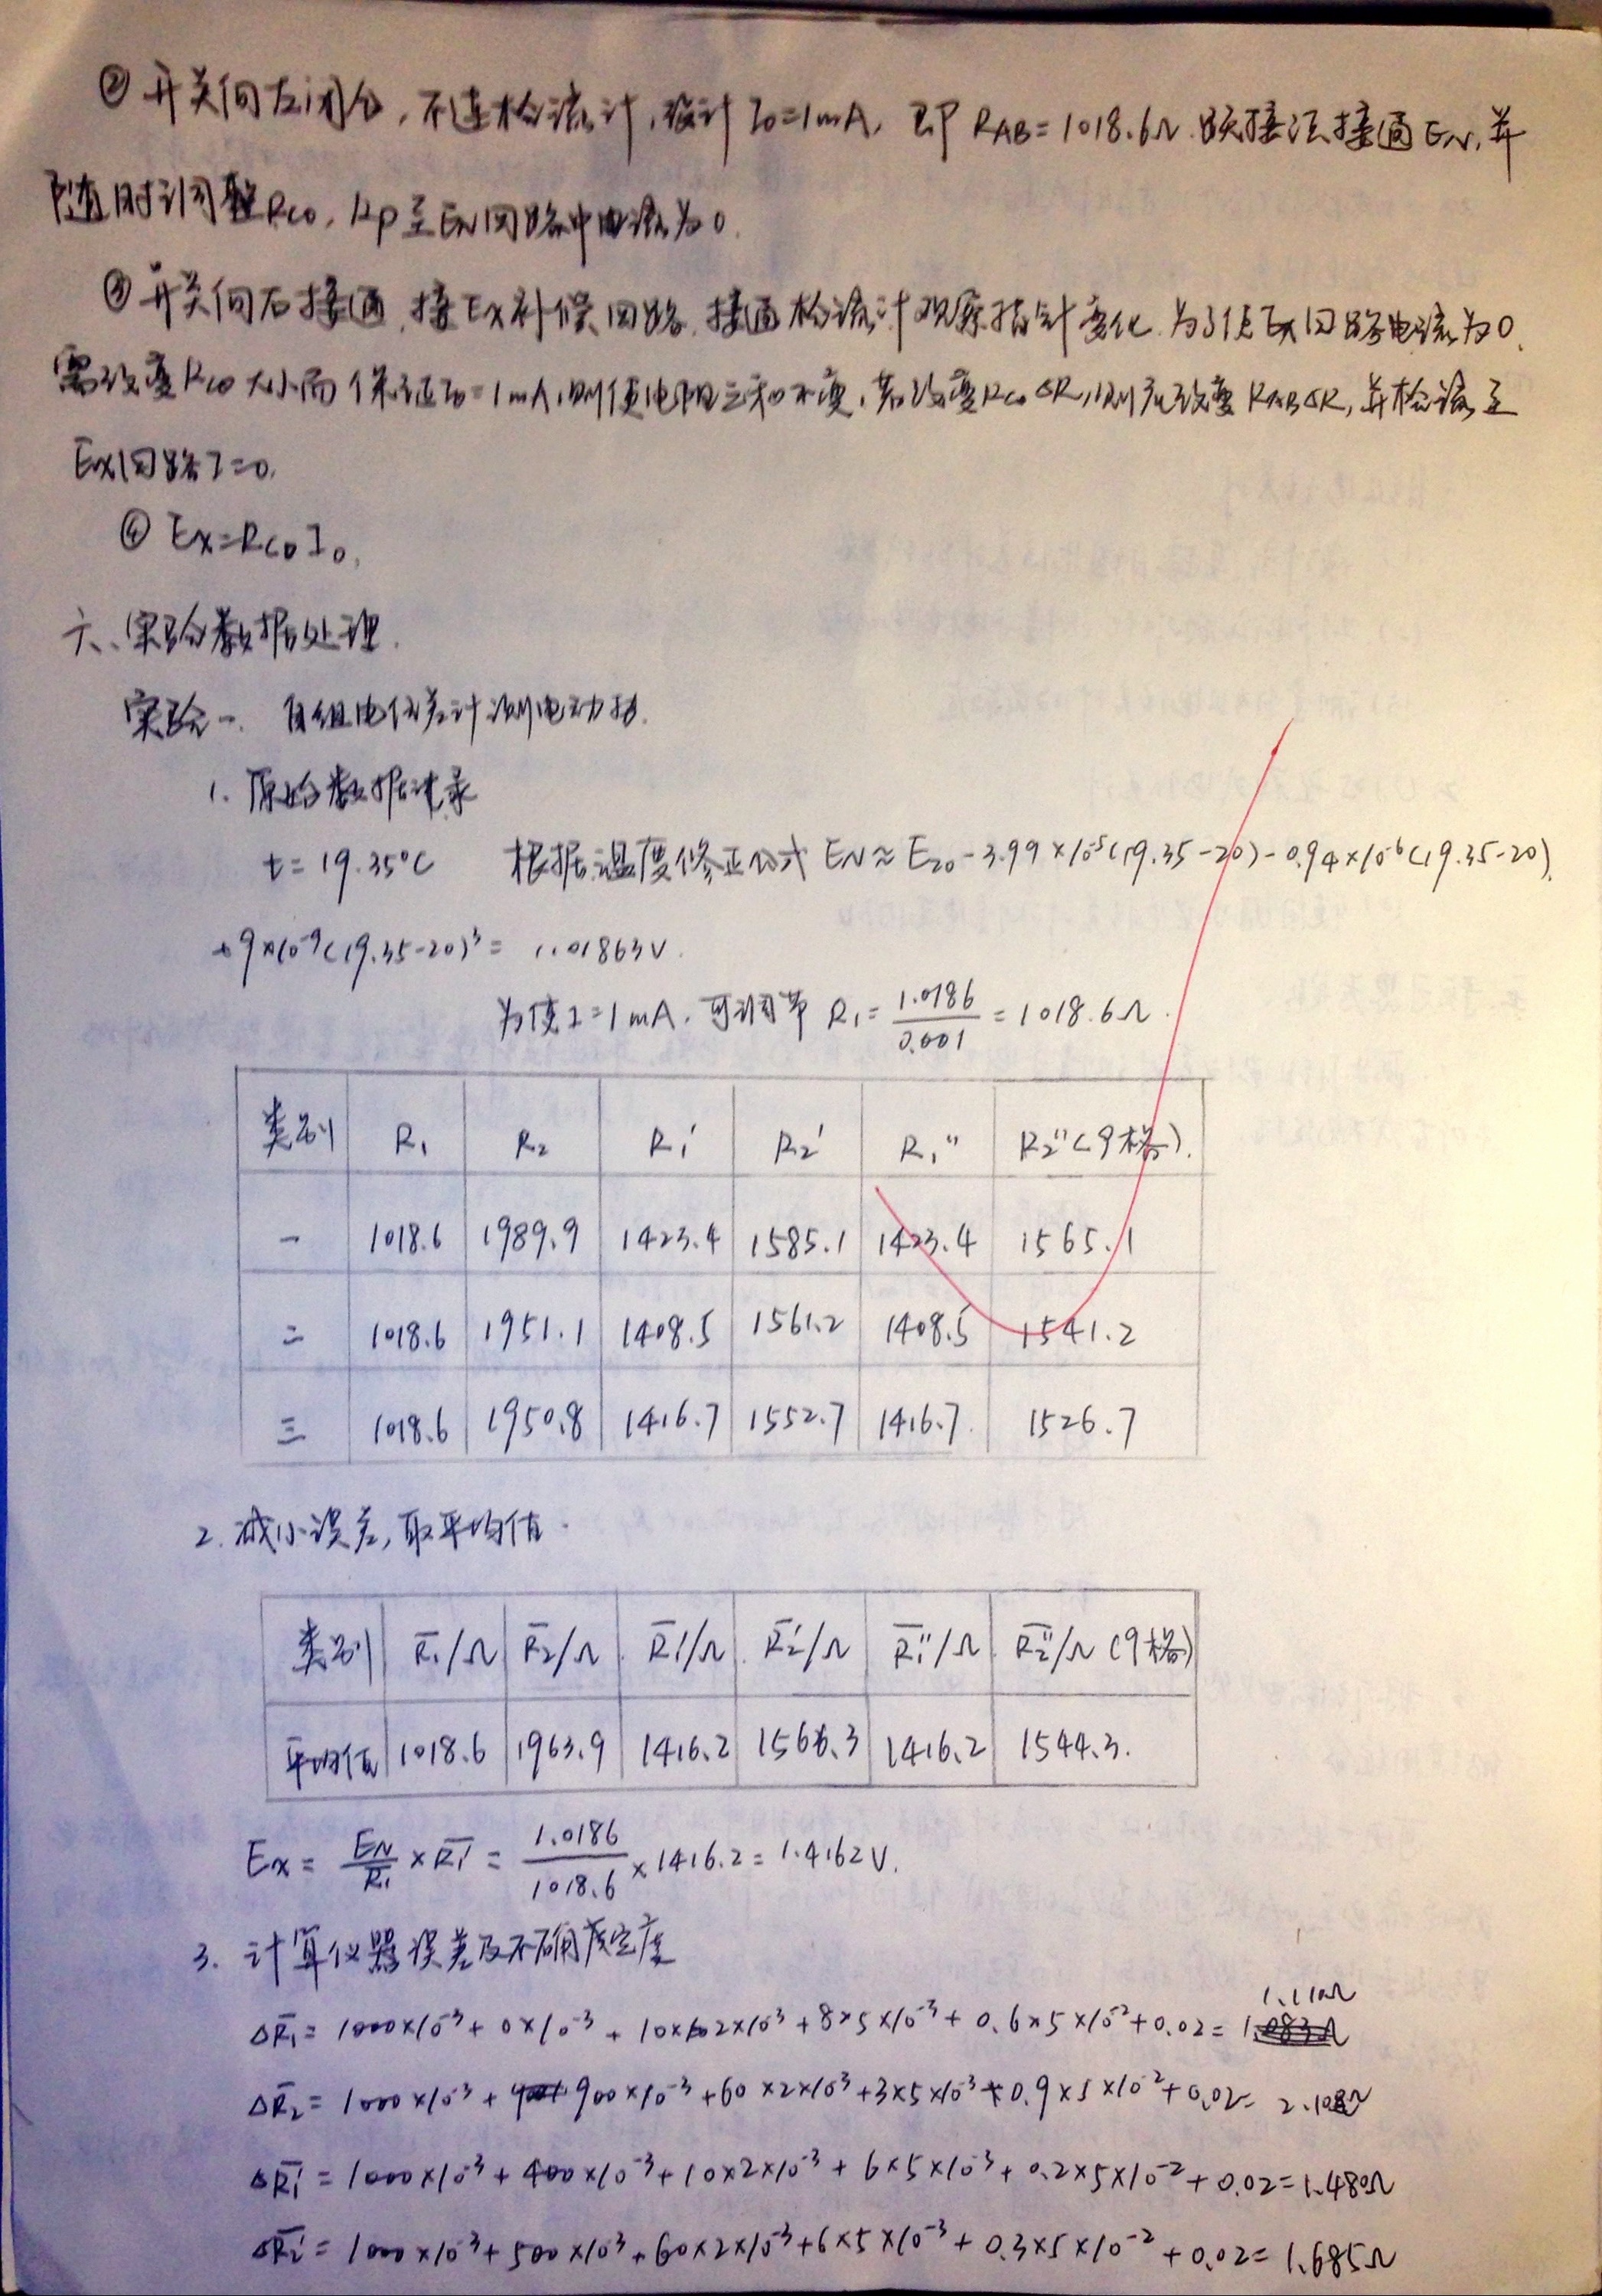 ② 开关向左闭合,不连检流计,设计 I₀=1mA, 即 R_AB=1018.6Ω 跃接法接通 E_N,并
随时调整R_CD,R_P至E_N回路中电流为0.
③ 开关向右接通,接Ex补偿回路,接通检流计观察指针变化.为了使Ex回路电流为0,
需改变R_CD大小而保证I₀=1mA,则使电阻之和不变,若改变R_CD ΔR,则应改变 R_AB ΔR,并检流至
Ex回路I=0.
④ Ex=R_CD I₀.
六、实验数据处理.
实验一. 自组电位差计测电动势.
1. 原始数据记录
t=19.35℃ 根据温度修正公式 E_N≈E₂₀-3.99×10⁻⁵(19.35-20)-0.94×10⁻⁶(19.35-20)
+9×10⁻⁹(19.35-20)³= 1.01863V.
为使I=1mA.可调节 R₁=1.0186/0.001=1018.6Ω.
类别 R₁ R₂ R₁′ R₂′ R₁″ R₂″(9格).
一 1018.6 1989.9 1423.4 1585.1 1423.4 1565.1
二 1018.6 1951.1 1408.5 1561.2 1408.5 1541.2
三 1018.6 1950.8 1416.7 1552.7 1416.7. 1526.7
2. 减小误差,取平均值.
类别 R̄₁/Ω R̄₂/Ω R̄₁′/Ω R̄₂′/Ω R̄₁″/Ω R̄₂″/Ω (9格)
平均值 1018.6 1963.9 1416.2 1566.3 1416.2 1544.3.
Ex= E_N/R₁ × R̄₁′ = 1.0186/1018.6 ×1416.2=1.4162V.
3. 计算仪器误差及不确定度
1.110Ω
ΔR̄₁= 1000×10⁻³+0×10⁻³+10×2×10⁻³+8×5×10⁻³+0.6×5×10⁻²+0.02=
ΔR̄₂= 1000×10⁻³+900×10⁻³+60×2×10⁻³+3×5×10⁻³+0.9×5×10⁻²+0.02= 2.10Ω
ΔR̄₁′= 1000×10⁻³+400×10⁻³+10×2×10⁻³+6×5×10⁻³+0.2×5×10⁻²+0.02=1.480Ω
ΔR̄₂′= 1000×10⁻³+500×10⁻³+60×2×10⁻³+6×5×10⁻³+0.3×5×10⁻²+0.02=1.685Ω